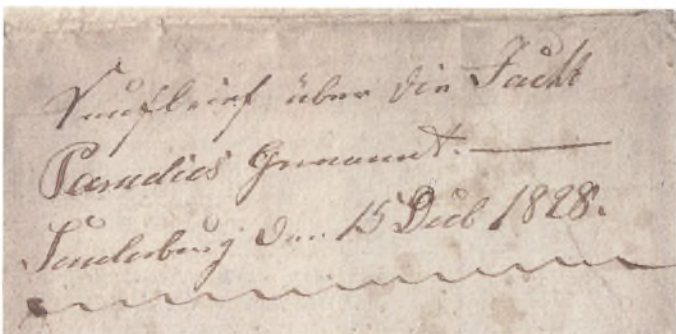 Kaufbrief über die Jacht
Paradies Genannt. —
Sonderburg den 15 Dcb 1828.